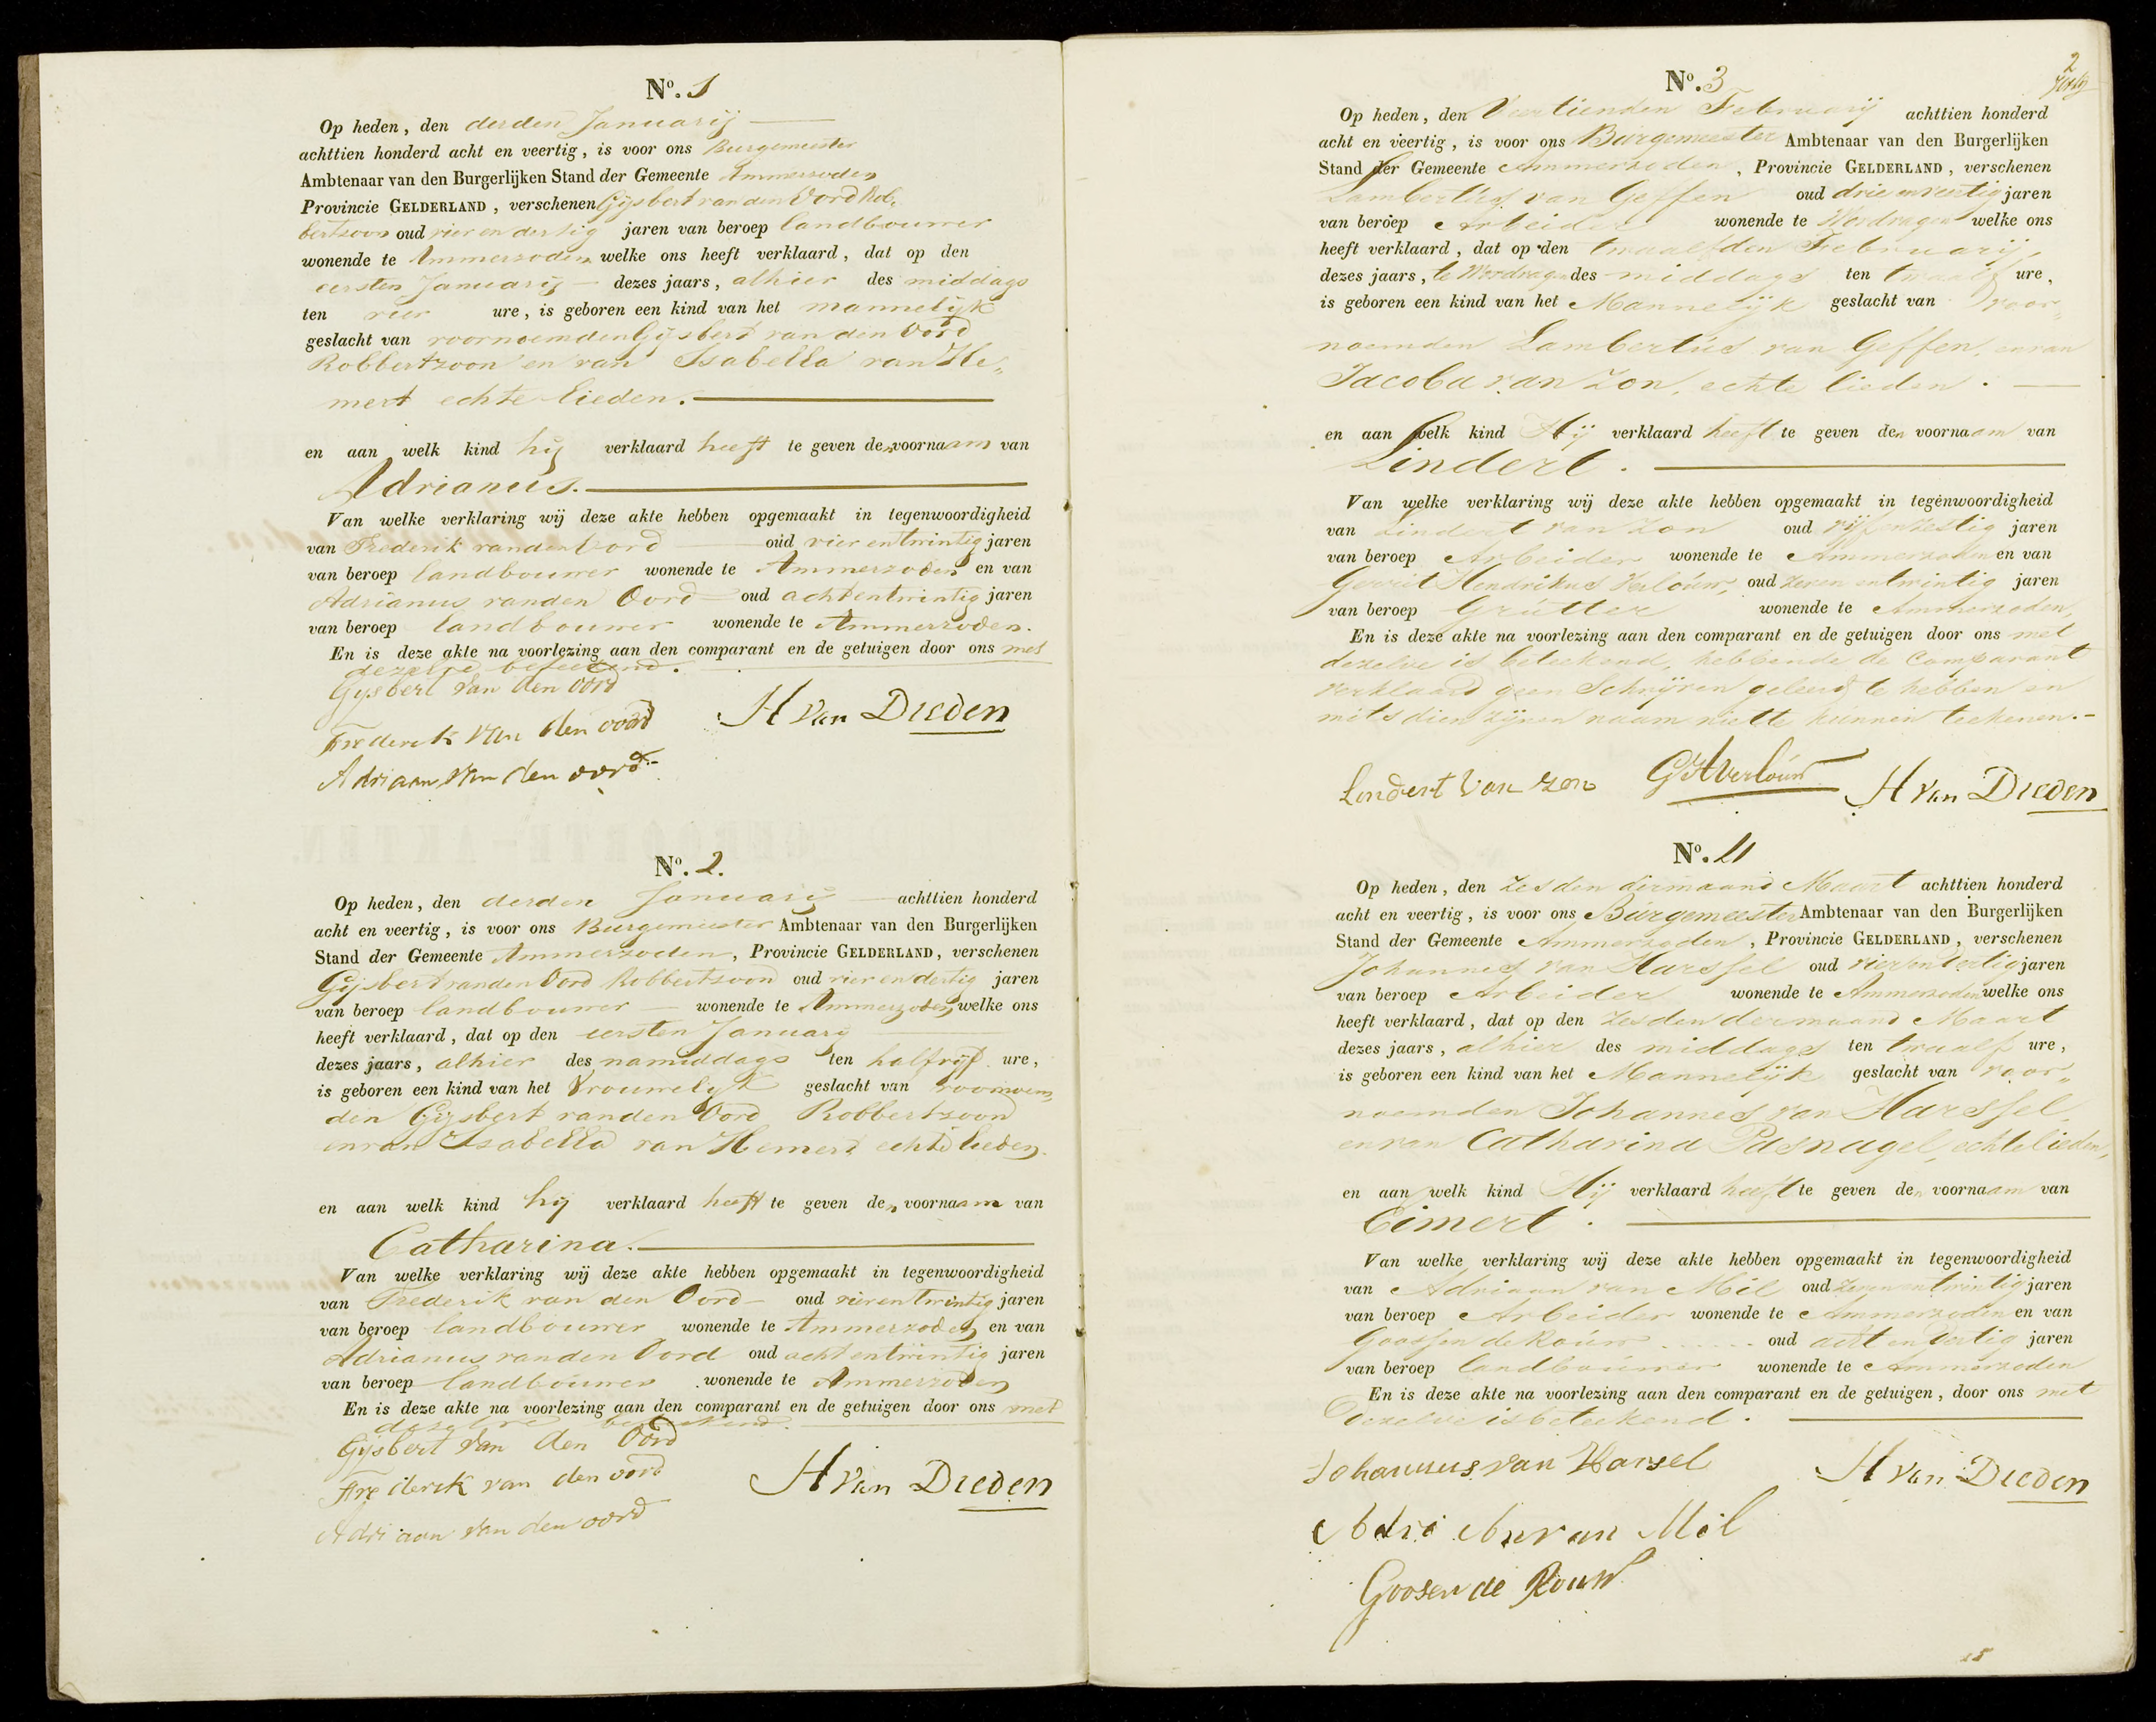 No. 1
Op heden, den derden Januarij
achttien honderd acht en veertig, is voor ons Burgemeester
Ambtenaar van den Burgerlijken Stand der Gemeente Ammerzoden
Provincie GELDERLAND, verschenen Gijsbert van den Oord Rob„
bertzoon oud vier en dertig jaren van beroep landbouwer
wonende te Ammerzoden welke ons heeft verklaard, dat op den
eersten Januarij dezes jaars, alhier des middags
ten vier ure, is geboren een kind van het mannelijk
geslacht van voornoemden Gijsbert van den Oord
Robbertzoon en van Isabella van He„
mert echte lieden.
en aan welk kind hij verklaard heeft te geven den voornaam van
Adrianus.
Van welke verklaring wij deze akte hebben opgemaakt in tegenwoordigheid
van Frederik van den Oord oud vier en twintig jaren
van beroep landbouwer wonende te Ammerzoden en van
Adrianus van den Oord oud acht en twintig jaren
van beroep landbouwer wonende te Ammerzoden.
En is deze akte na voorlezing aan den comparant en de getuigen door ons met
dezelve beteekend.
Gijsbert Van den Oord
Frederik Van den oord
H Van Dieden
Adriaan Van den oord
No. 2.
Op heden, den derden Januarij achttien honderd
acht en veertig, is voor ons Burgemeester Ambtenaar van den Burgerlijken
Stand der Gemeente Ammerzoden, Provincie GELDERLAND, verschenen
Gijsbert van den Oord Robbertzoon oud vier en dertig jaren
van beroep landbouwer wonende te Ammerzoden, welke ons
heeft verklaard, dat op den eersten Januarij
dezes jaars, alhier des namiddags ten half vijf ure,
is geboren een kind van het Vrouwelijk geslacht van voornoem„
den Gijsbert van den Oord Robbertzoon
en van Isabella van Hemert echte lieden.
en aan welk kind hij verklaard heeft te geven den voornaam van
Catharina.
Van welke verklaring wij deze akte hebben opgemaakt in tegenwoordigheid
van Frederik van den Oord oud vier en twintig jaren
van beroep landbouwer wonende te Ammerzoden en van
Adrianus van den Oord oud acht en twintig jaren
van beroep landbouwer wonende te Ammerzoden
En is deze akte na voorlezing aan den comparant en de getuigen door ons met
dezelve beteekend.
Gijsbert Van den Oord
Frederik van den oord
H Van Dieden
Adriaan Van den oord
2
No. 3
Op heden, den Veertienden Februarij achttien honderd
acht en veertig, is voor ons Burgemeester Ambtenaar van den Burgerlijken
Stand der Gemeente Ammerzoden, Provincie GELDERLAND, verschenen
Lambertus van Geffen oud drie en veertig jaren
van beroep Arbeider wonende te Wordragen welke ons
heeft verklaard, dat op den twaalfden Februarij,
dezes jaars, te Wordragen des middags ten twaalf ure,
is geboren een kind van het Mannelijk geslacht van voor„
noemden Lambertus van Geffen, en van
Jacoba van Zon, echte lieden.
en aan welk kind Hij verklaard heeft te geven den voornaam van
Lindert.
Van welke verklaring wij deze akte hebben opgemaakt in tegenwoordigheid
van Lindert van Zon oud vijf en zestig jaren
van beroep Arbeider wonende te Ammerzoden en van
Gerrit Hendrikus Verlouw, oud zeven en twintig jaren
van beroep Grutter wonende te Ammerzoden,
En is deze akte na voorlezing aan den comparant en de getuigen door ons met
dezelve is beteekend, hebbende de Comparant
verklaard geen Schrijven geleerd te hebben en
mitsdien zijnen naam niet te kunnen teekenen.
Lendert Van zon GHVerlouw H Van Dieden
No. 4
Op heden, den Zesden dermaand Maart achttien honderd
acht en veertig, is voor ons Burgemeester Ambtenaar van den Burgerlijken
Stand der Gemeente Ammerzoden, Provincie GELDERLAND, verschenen
Johannes van Harssel oud vier en veertig jaren
van beroep Arbeider wonende te Ammerzoden welke ons
heeft verklaard, dat op den Zesden dermaand Maart
dezes jaars, alhier des middags ten twaalf ure,
is geboren een kind van het Mannelijk geslacht van voor„
noemden Johannes van Harssel,
en van Catharina Pasnagel, echtelieden,
en aan welk kind Hij verklaard heeft te geven den voornaam van
Eimert.
Van welke verklaring wij deze akte hebben opgemaakt in tegenwoordigheid
van Adriaan van Mil oud zeven en twintig jaren
van beroep Arbeider wonende te Ammerzoden en van
Goossen de Rouw oud acht en veertig jaren
van beroep landbouwer wonende te Ammerzoden
En is deze akte na voorlezing aan den comparant en de getuigen, door ons met
Dezelve is beteekend.
Johannus van Harsel
H Van Dieden
Adri An van Mil
Goosen de Rouw
15